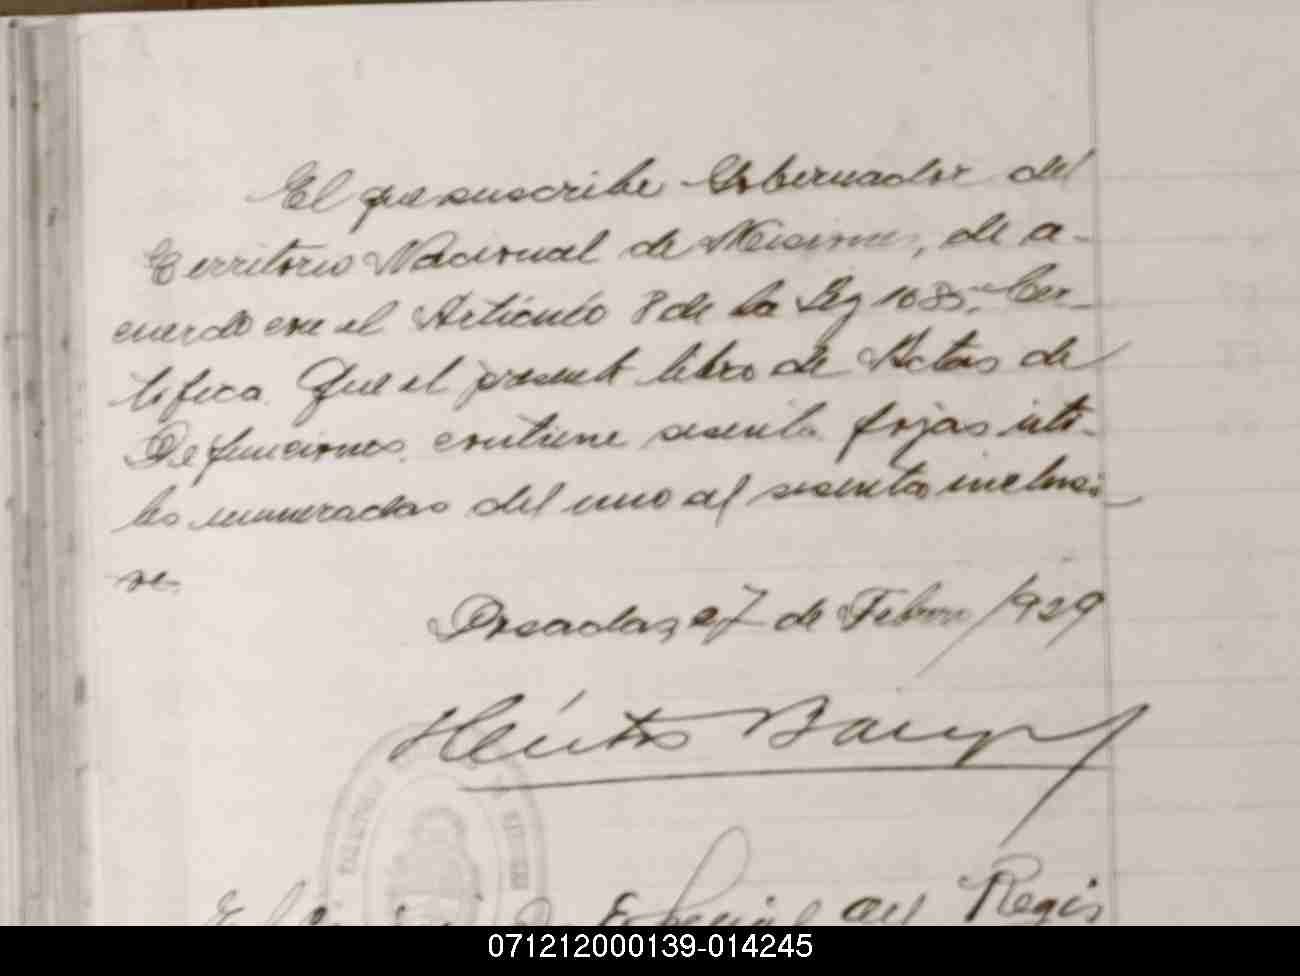 El que suscribe Gobernador del
Territorio Nacional de Misiones, de a-
cuerdo con el Artículo 8 de la Ley 1035, Cer-
tifica. Que el presente libro de Actas de
Defunciones, contiene sesenta fojas úti-
les numeradas del uno al sesenta inclusi-
ve.
Posadas, 27 de Febro /929
Héctor
del Regis
071212000139-014245